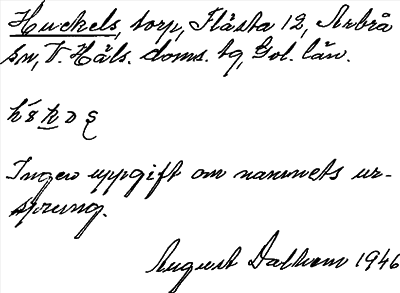 Huckels, torp, Flästa 12, Arbrå
sn, V. Häls. doms. tg, Gol. län.
Ingen uppgift om namnets ur-
sprung.
August Dalham 1946